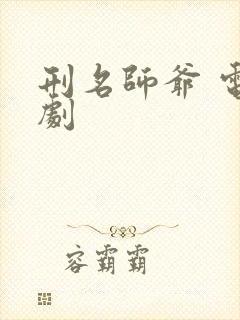 刑名師爺 電
劇
容霸霸